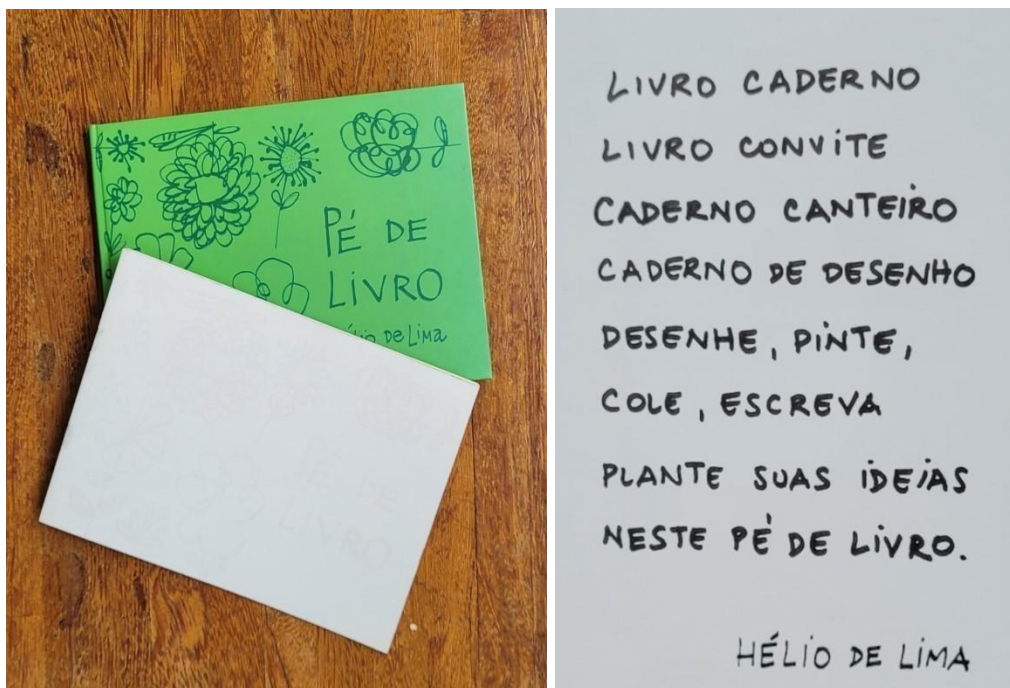 PÉ DE
LIVRO
Hélio de Lima
PÉ DE
LIVRO
LIVRO CADERNO
LIVRO CONVITE
CADERNO CANTEIRO
CADERNO DE DESENHO
DESENHE, PINTE,
COLE, ESCREVA
PLANTE SUAS IDEIAS
NESTE PÉ DE LIVRO.
HÉLIO DE LIMA